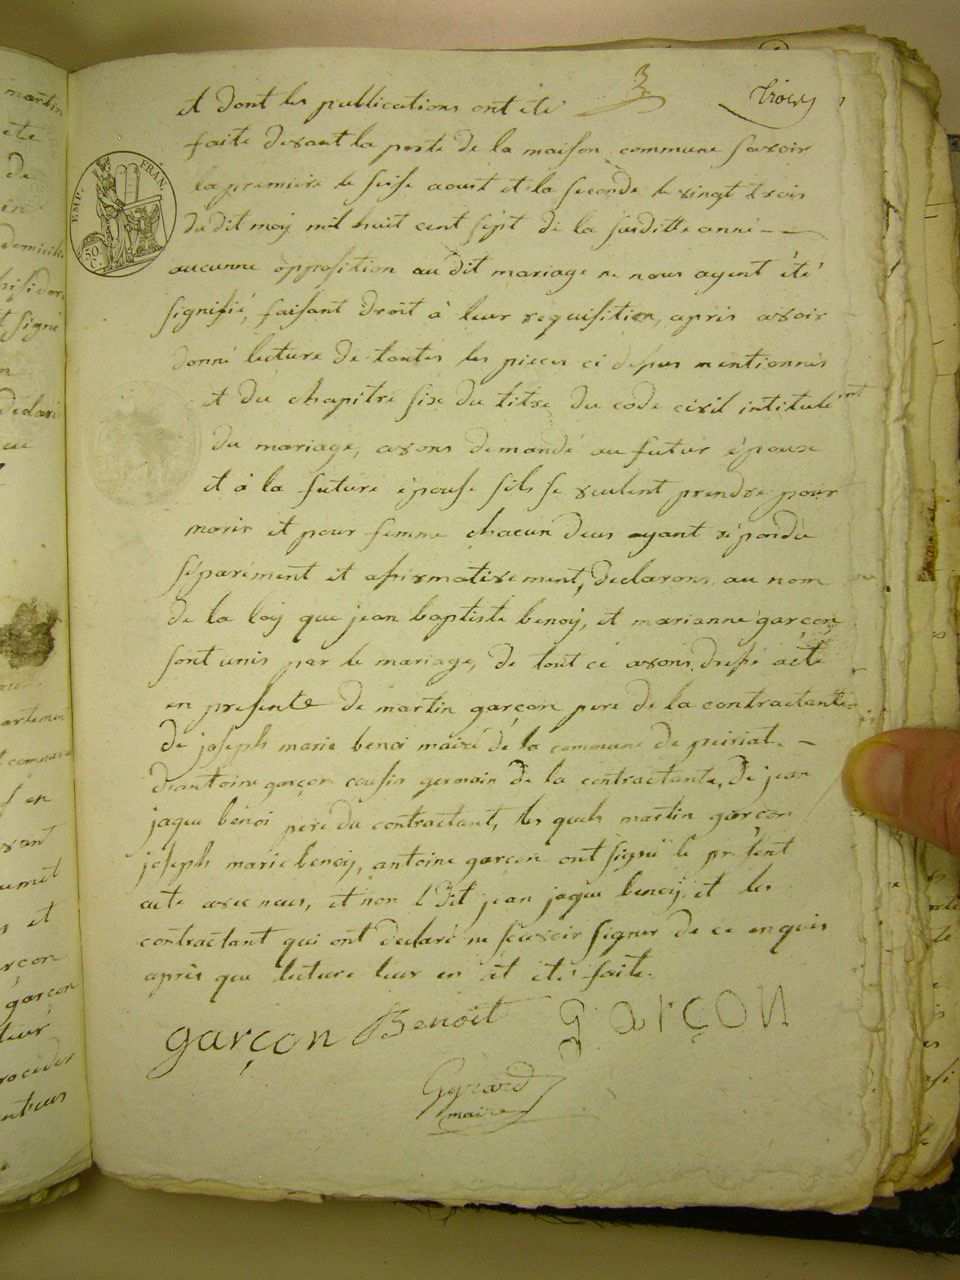 3 trois
et dont les publications ont été
faite devant la porte de la maison commune savoir
la premiere le seise aoust et la seconde le vingt trois
du dit moy mil huit cent sept de la susditte anné
EMP. FRAN.
50 C.
aucunne opposition au dit mariage ne nous ayent été
signifié, faisant droit à leur requisition, après avoir
donné lecture de toutes les pieces ci depus mentionnés
et du chapitre six du titre du code civil intitulé
du mariage, avons demandé au futur épouse
et à la future épouse sils se veulent prendre pour
marir et pour femme chacun deus ayant répondu
séparément et afirmativement, declarons au nom
de la loy que jean baptiste benoy, et marianne garçon
sont unis par le mariage, de tout ce avons, dressé acte
en presente de martin garçon pere de la contractante
de joseph marie benoi mairé de la commune de
dantoine garçon cousin germain de la contractante, de jean
jaque benoi pere du contractant, les quels martin garçon
joseph marie benoy, antoine garçon ont signé le present
acte avec nous, et non l dit jean jaque benoy et les
contractant qui ont declaré ne sçavoir signer de ce enquis
après que lecture leur en et été faite.
garçon Benoit garçon
maire